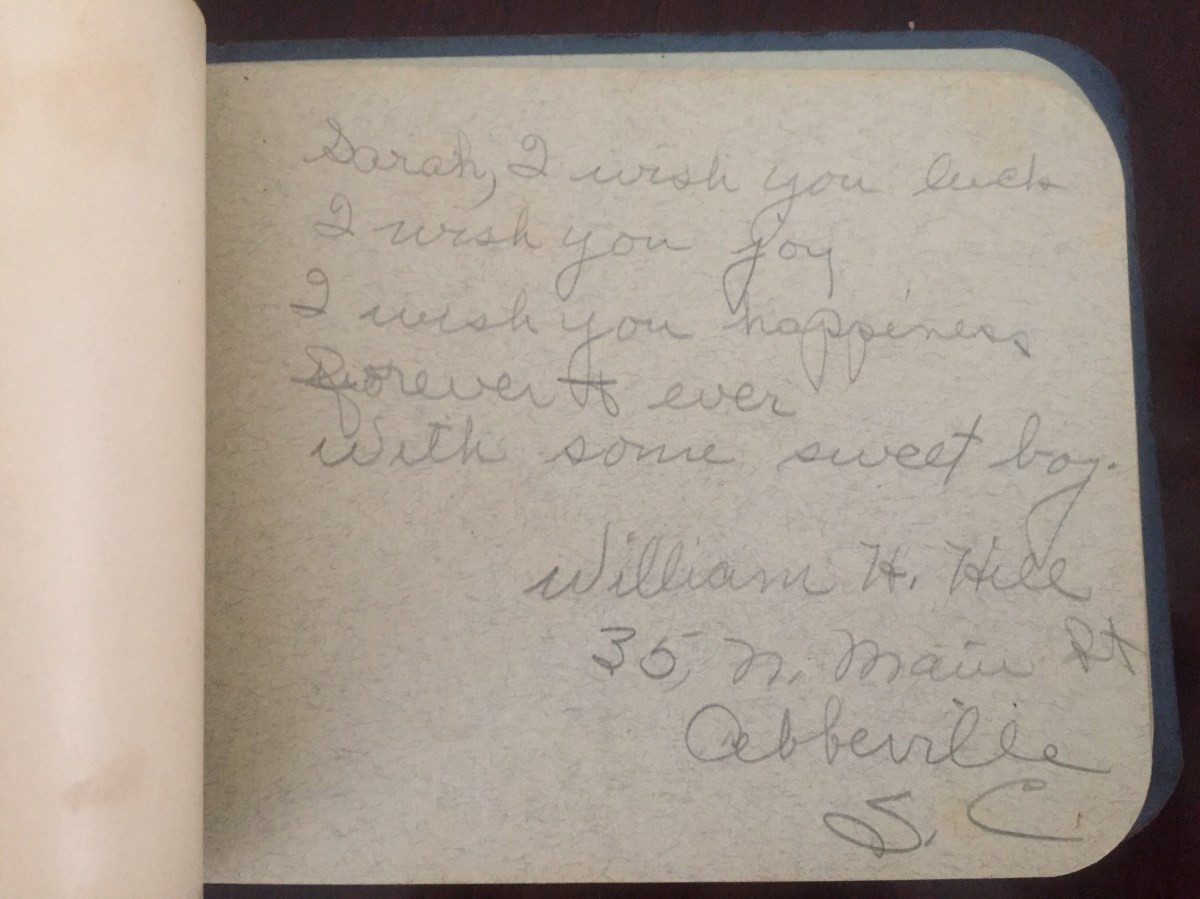 Sarah, I wish you luck
I wish you joy
I wish you happiness
Forever & ever
With some sweet boy.
William H. Hill
35, N. Main St
Abbeville
S. C.